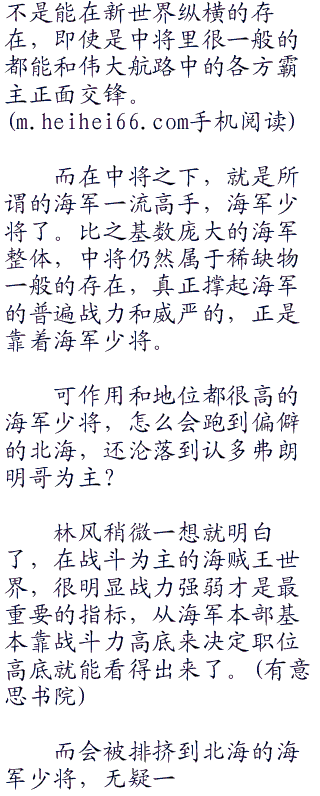 不是能在新世界纵横的存
在，即使是中将里很一般的
都能和伟大航路中的各方霸
主正面交锋。
(m.heihei66.com手机阅读)
而在中将之下，就是所
谓的海军一流高手，海军少
将了。比之基数庞大的海军
整体，中将仍然属于稀缺物
一般的存在，真正撑起海军
的普遍战力和威严的，正是
靠着海军少将。
可作用和地位都很高的
海军少将，怎么会跑到偏僻
的北海，还沦落到认多弗朗
明哥为主？
林风稍微一想就明白
了，在战斗为主的海贼王世
界，很明显战力强弱才是最
重要的指标，从海军本部基
本靠战斗力高底来决定职位
高底就能看得出来了。(有意
思书院)
而会被排挤到北海的海
军少将，无疑一